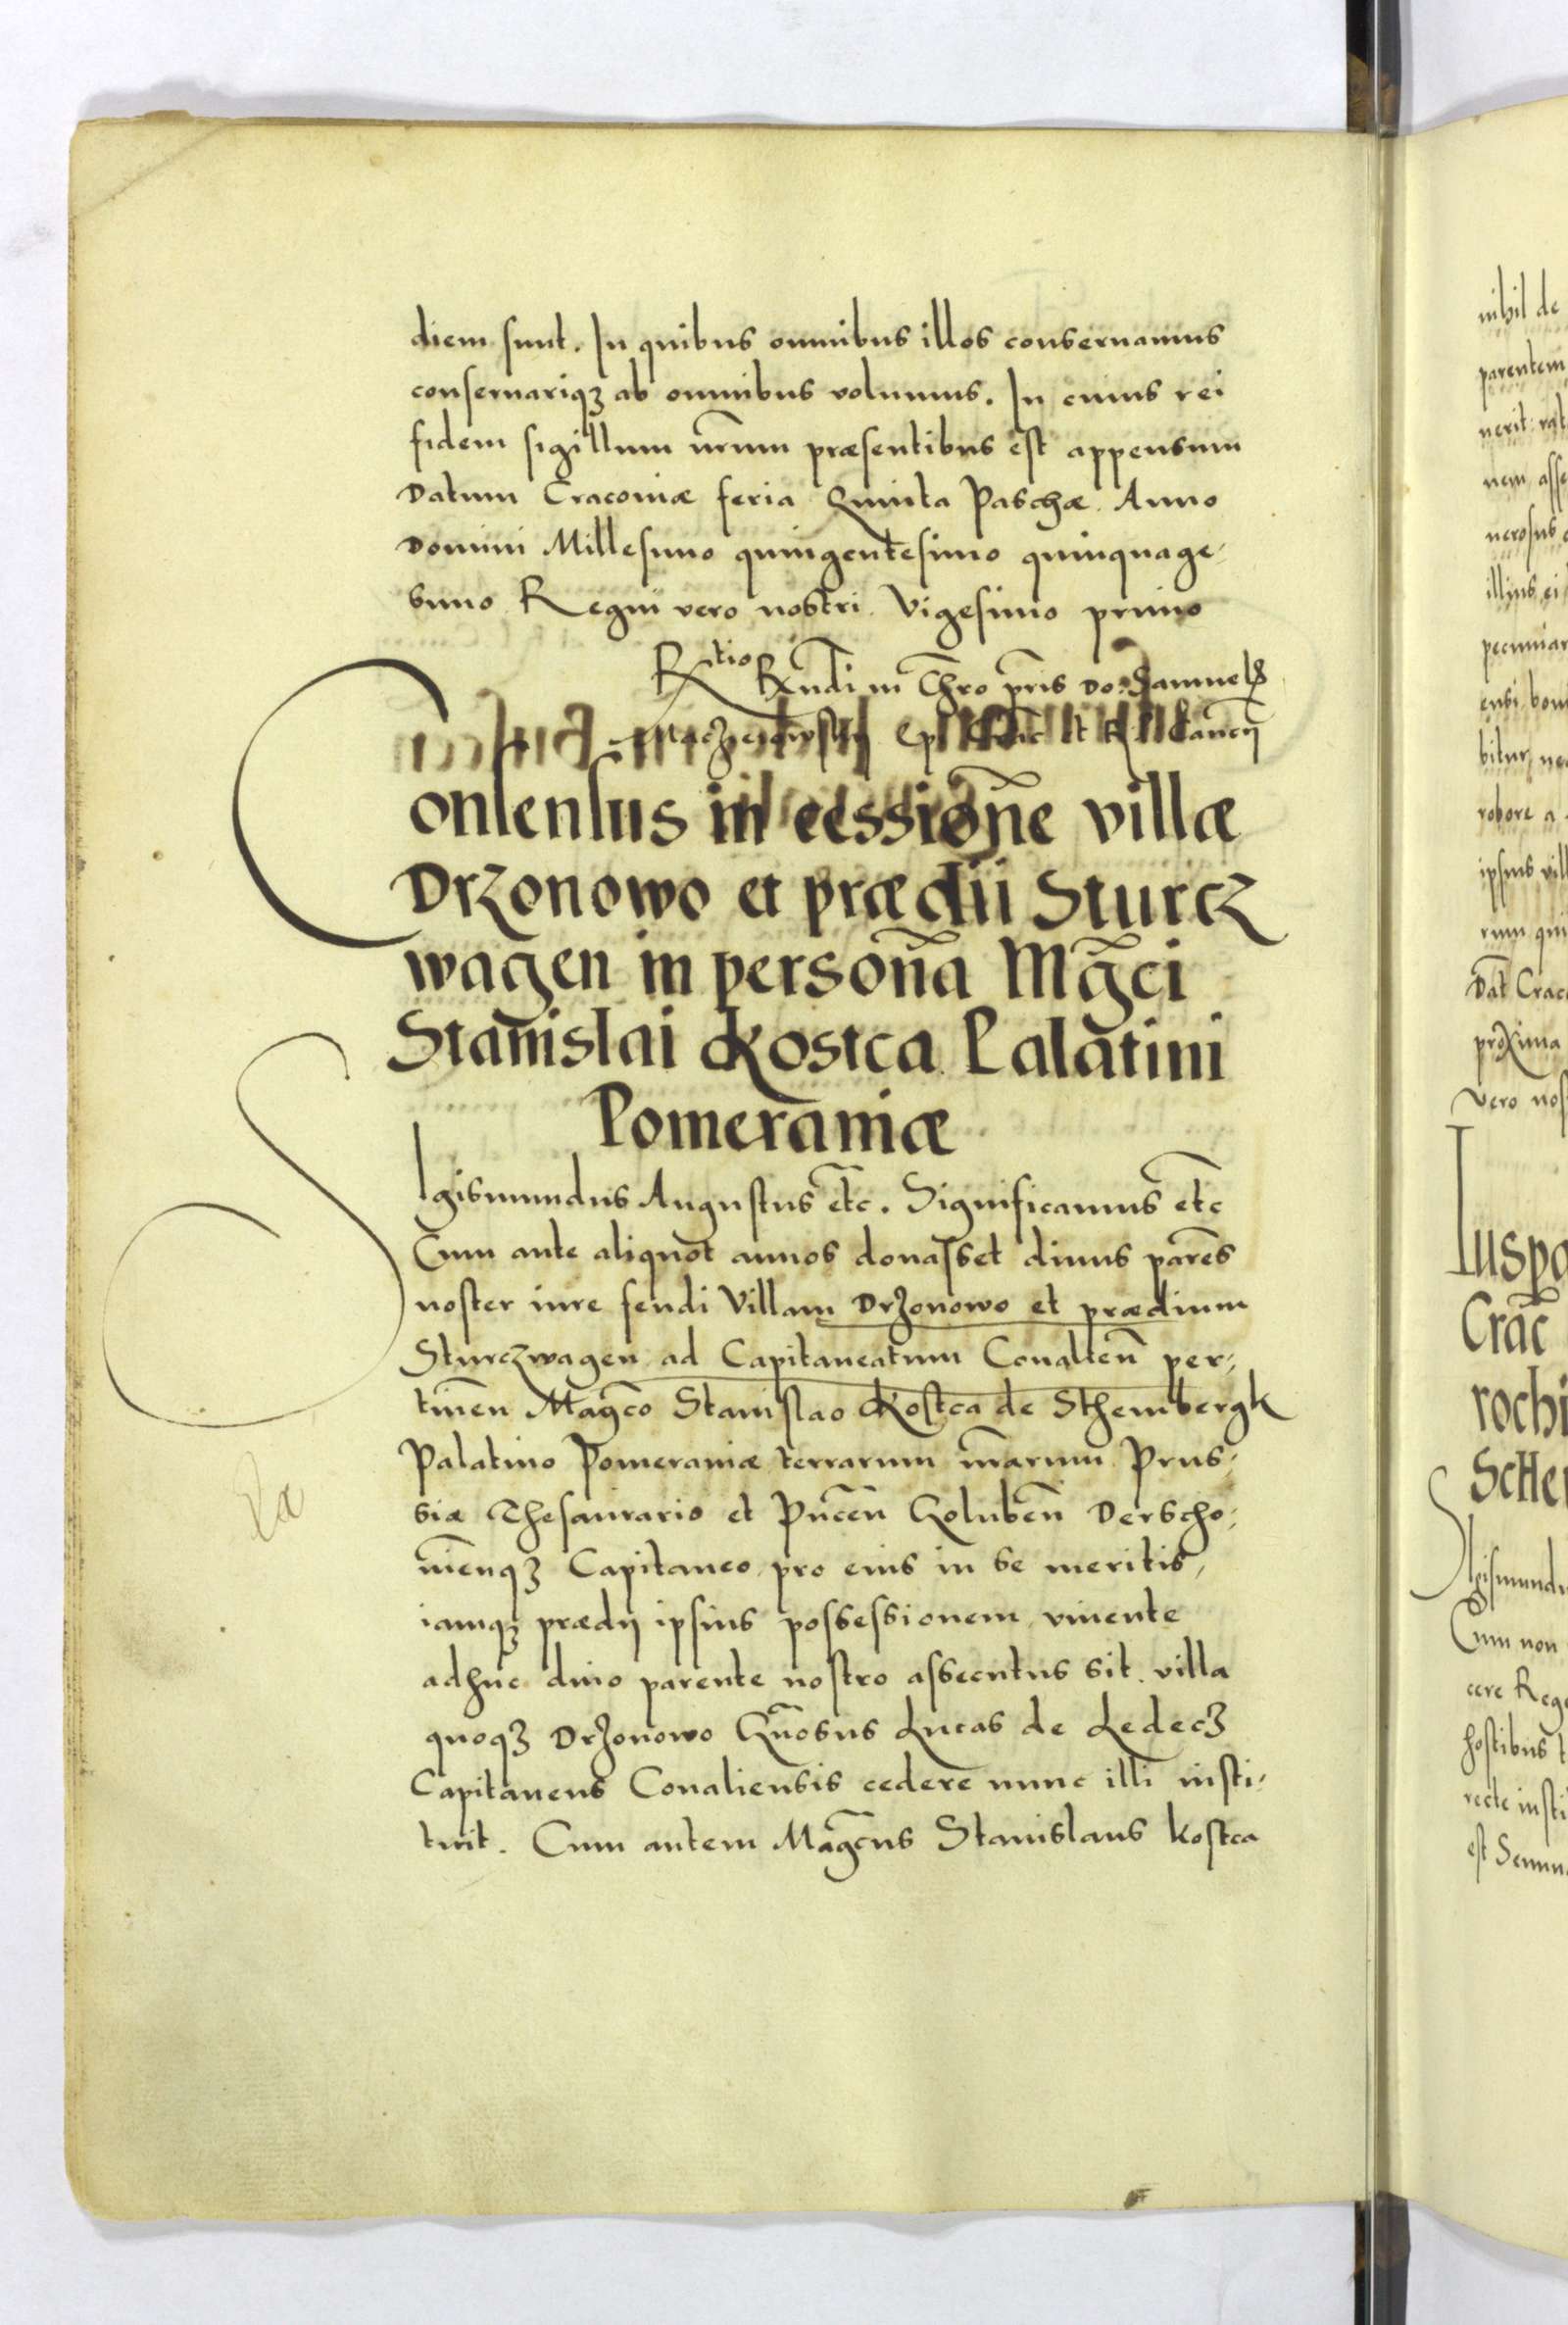 diem sunt. In quibus omnibus illos conservamus
conservariqꝫ ab omnibus volumus. In cuius rei
fidem sigillum nr̃um præsentibus est appensum
Datum Cracoviæ feria Quinta Paschæ Anno
Domini Millesimo quingentesimo quinquage-
simo Regni vero nostri Vigesimo primo
Rtio Rx̃ndi in Chr̃o pr̃is Do: Samuelis
Maczieiowsky Ep̃i Crac̃ et R P Cancẽ
Consensus in cessiõne villæ
Drzonowo et prædii Sturcz
wagen in persoña Mg̃ci
Stanislai Kostca Palatini
Pomeraniæ
Sigismundus Augustus etc̃. Significamus etc̃
Cum ante aliquot annos donasset divus parens
noster iure feudi Villam Drzonowo et prædium
Sturczwagen ad Capitaneatum Covalien̄ per-
tinen̄ Magc̃o Stanislao Kostca de Sthembergk
Palatino Pomeraniæ terrarum nr̃arum Prus-
siæ Thesaurario et Pucen̄ Goluben̄ Derscho-
vien̄qꝫ Capitaneo pro eius in se meritis,
iamqꝫ prædij ipsius possessionem vivente
adhuc divo parente nostro assecutus sit. villa
quoqꝫ Drzonowo Gñosus Lucas de Ledecz
Capitaneus Covaliensis cedere nunc illi insti-
tuit. Cum autem Mag̃cus Stanislaus Kostca
nihil de
parentem
nerit: rat
nem asse
nerosus
illius ei
pecuniar
ensi bon
bitur, ne
robore a
ipsius vill
rum qui
Dat̃ Crac
proxima
vero nos
Iuspa
Crac̃
rochi
Scher
Sigismund
Cum non
cere Reg
hostibus t
recte insti
est Semu